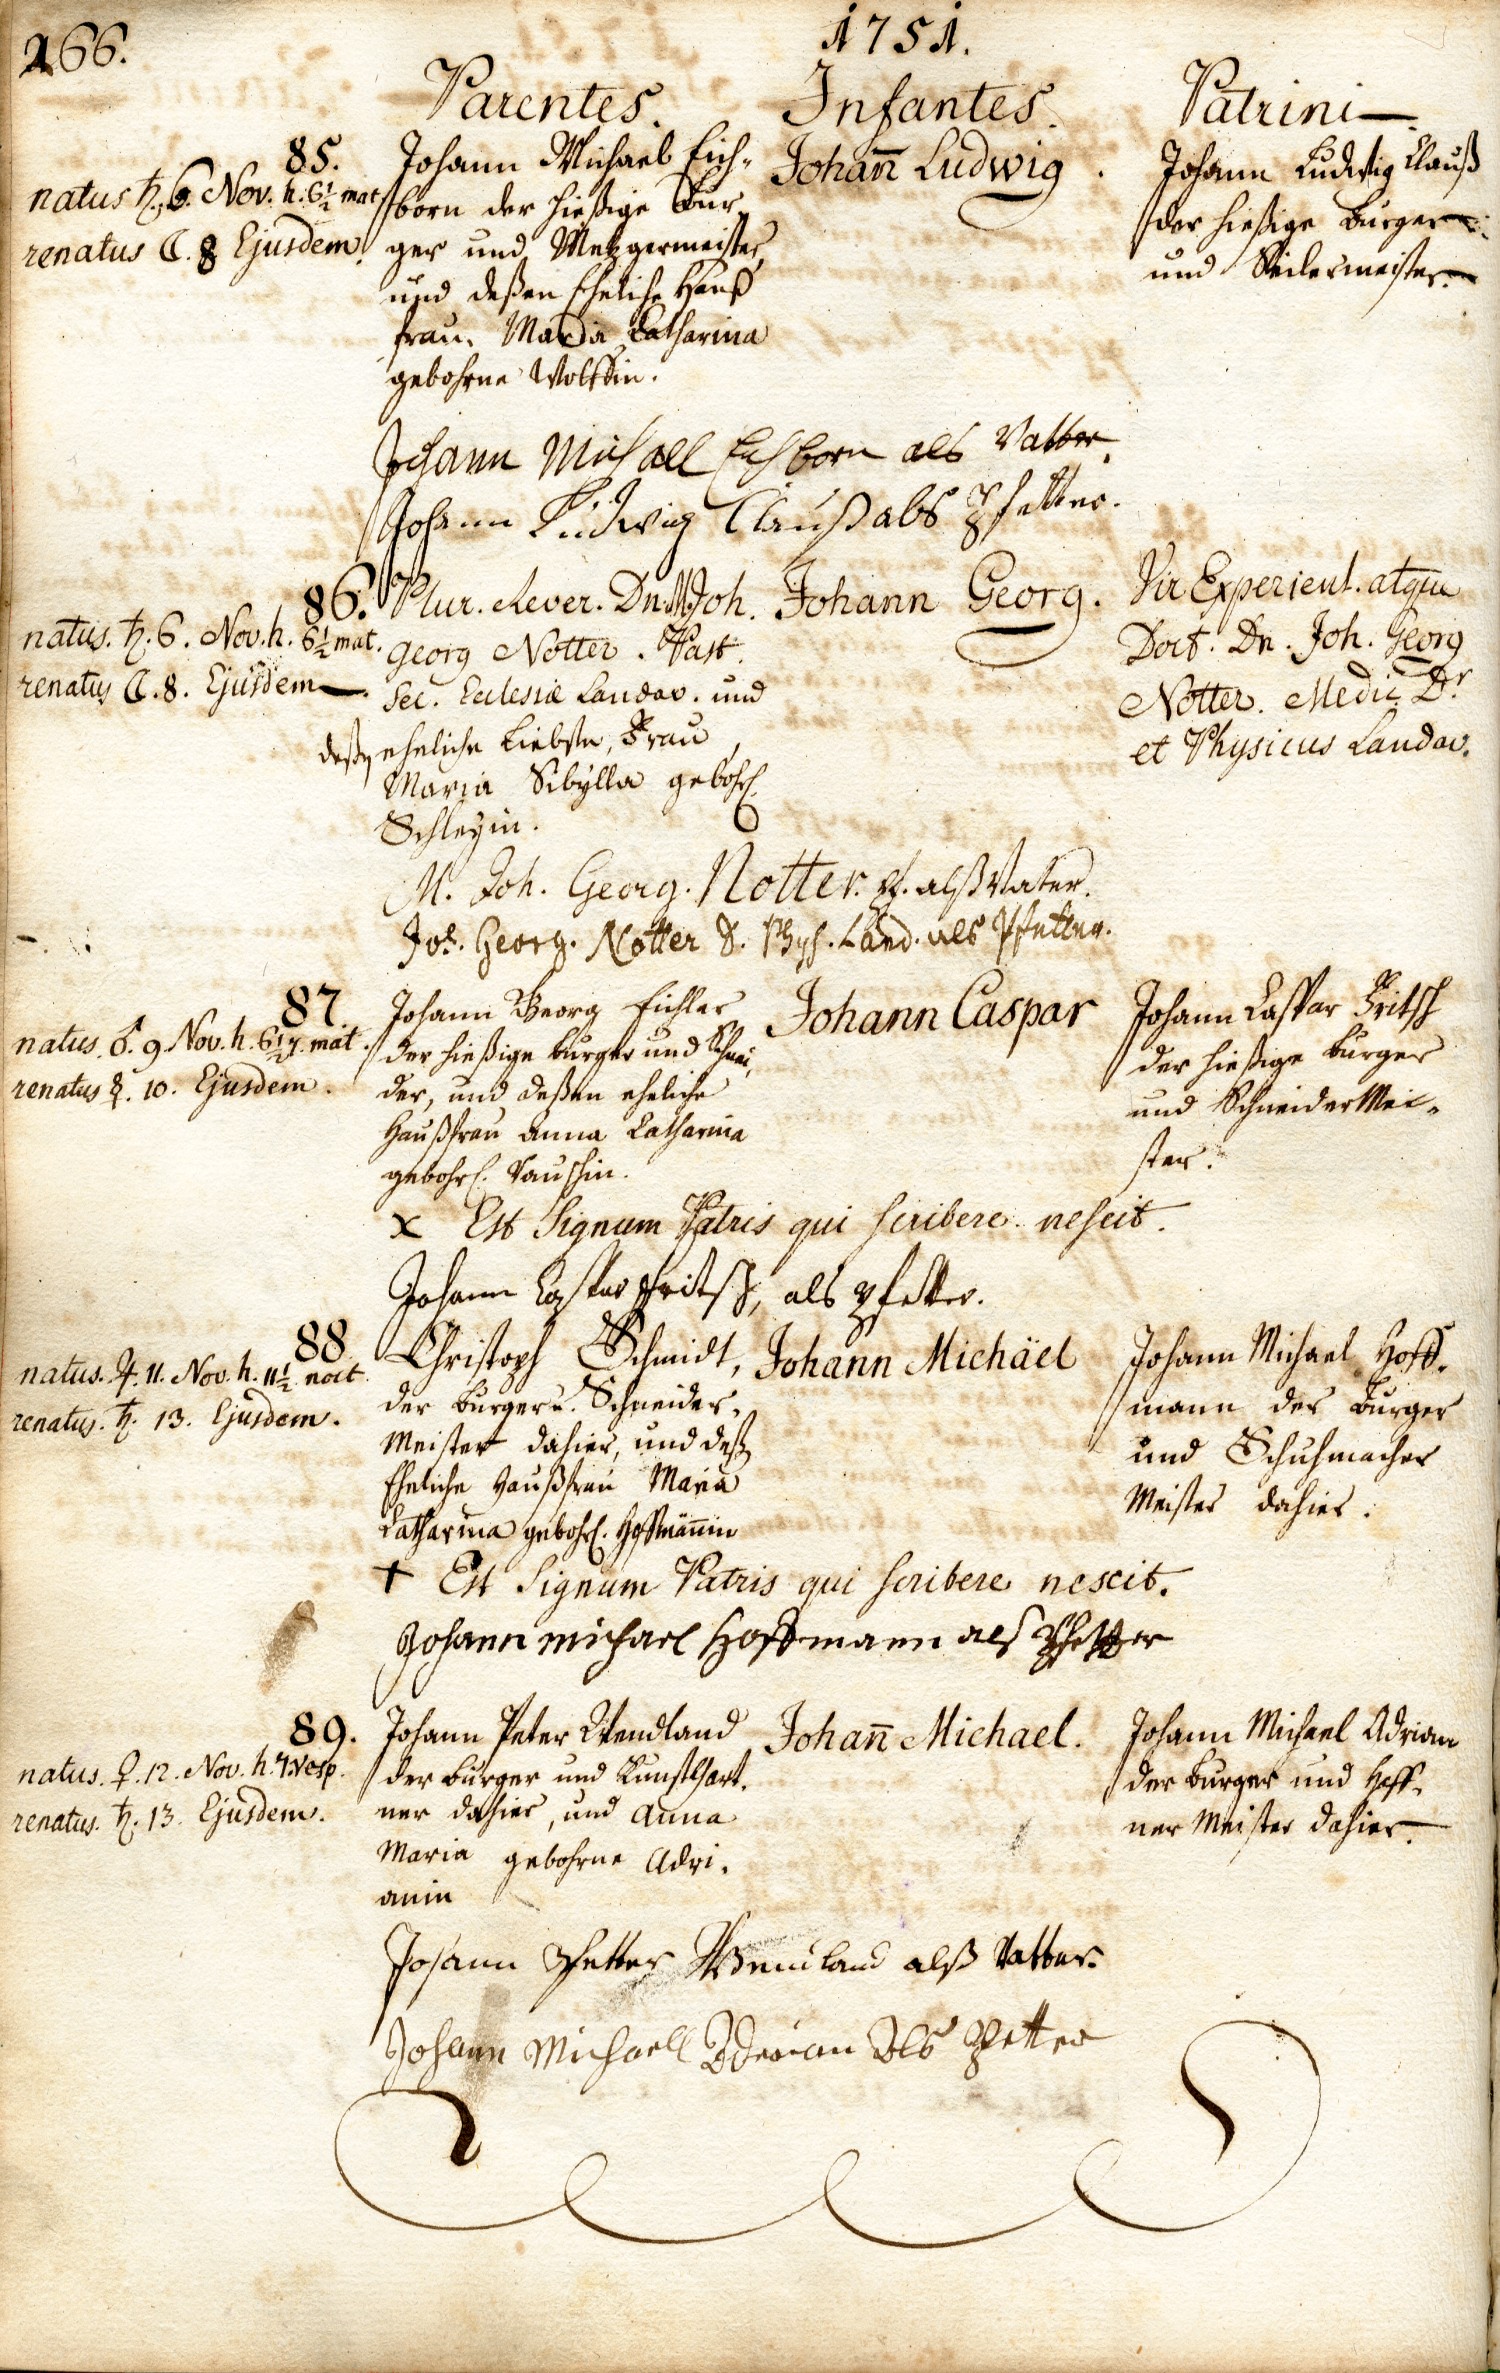 166.
1751.
Parentes.
Infantes.
Patrini
85.
natus ♄. 6. Nov. h. 6½ mat.
renatus ☾. 8 Ejusdem.
Johann Michael Eich-
born der hießige Bur-
ger und Metzgermeister,
und deßen Eheliche Hauß
frau, Maria Catharina
gebohrne Wolffin.
Johann̄ Ludwig.
Johann Ludwig Clauß
der hießige Burger
und Seilermeister.
Johann Michaell Eichborn als Vatter.
Johann Ludwig Clauß als Pfetter.
86.
natus. ♄. 6. Nov. h. 6½ mat.
renatus ☾. 8. Ejusdem.
Plur. Rever. Dn. M. Joh.
Georg Notter. Past.
Sec. Eclesiæ Landav. und
deßen eheliche Liebste, Frau
Maria Sibylla gebohr.
Schleyin.
Johann Georg.
Vir Experient. atque
Doct. Dn. Joh. Georg
Notter. Medic. Dr
et Physicus Landav.
M. Joh. Georg. Notter. pf. alß Vater.
Joh. Georg. Notter D. Phys. Land. als Pfetter.
87
natus. ♂. 9. Nov. h. 6½ 7. mat.
renatus ☿. 10. Ejusdem.
Johann Georg Eichler
der hießige burger und Schnei-
der, und deßen eheliche
Haußfrau Anna Catharina
gebohr.
Johann Caspar
Johann Caspar Fritsch
der hießige burger
und Schneider Mei-
ster.
x Est Signum Patris qui scribere nescit.
Johann Caspar Fritsch, als Pfetter.
88
natus. ♃. 11. Nov. h. 11½ noct.
renatus. ♄. 13. Ejusdem.
Christoph Schmidt,
der burger u. Schneider-
Meister dahier, und deß.
Eheliche Haußfrau Maria
Catharina gebohr. Hoffmännin
Johann Michäel
Johann Michael Hoff-
mann der burger
und Schuhmacher
Meister dahier.
† Est Signum Patris qui scribere nescit.
Johann michael Hoffmann als Pfetter
89.
natus. ♀. 12. Nov. h. 4. Vesp.
renatus. ♄. 13. Ejusdem.
Johann Peter Wendland
der burger und Kunstgärt-
ner dahier, und Anna
Maria gebohrne Adri-
anin
Johann̄ Michael.
Johann Michael Adrian
der burger und Haff-
ner Meister dahier.
Johann Petter Wendland alß Vatter.
Johann Michaell Aderian Als Petter